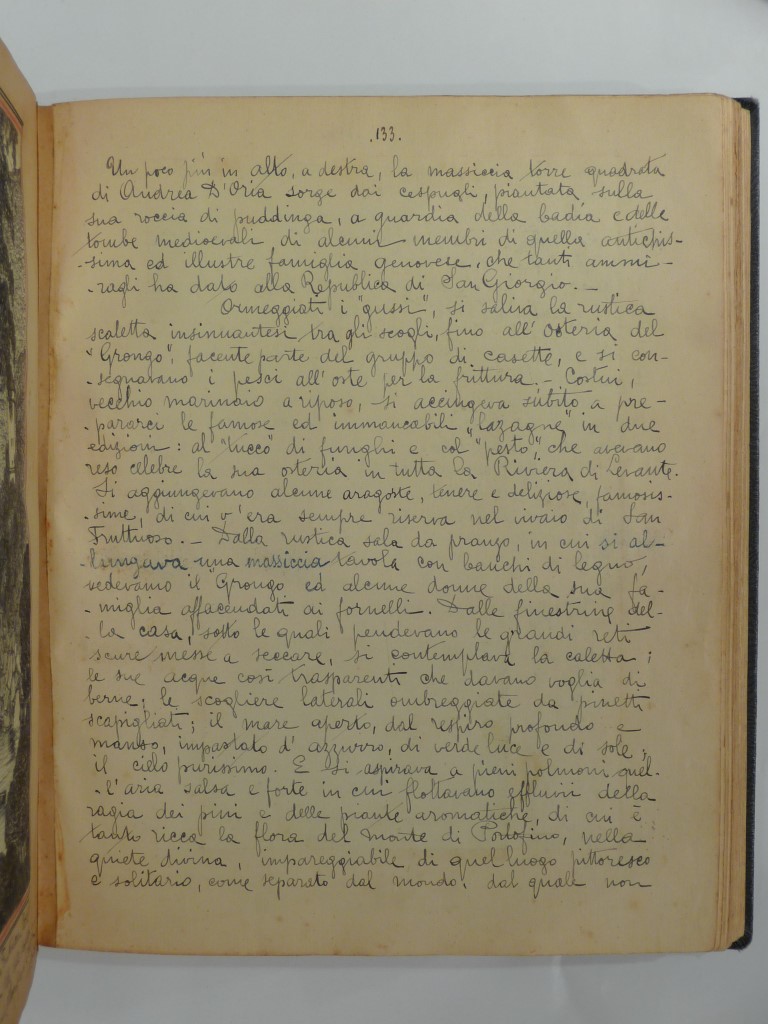 .133.
Un poco più in alto, a destra, la massiccia torre quadrata
di Andrea D'Oria sorge dai cespugli, piantata sulla
sua roccia di puddinga, a guardia della badia e delle
tombe medioevali di alcuni membri di quella antichis-
-sima ed illustre famiglia genovese, che tanti ammi-
-ragli ha dato alla Repubblica di San Giorgio. -
Ormeggiati i "gussi", si saliva la rustica
scaletta insinuantesi tra gli scogli, fino all'Osteria del
"Grongo", facente parte del gruppo di casette, e si con-
-segnavano i pesci all'oste per la frittura. - Costui,
vecchio marinaio a riposo, si accingeva subito a pre-
-pararci le famose ed immancabili "lazagne" in due
edizioni: al "tucco" di funghi e col "pesto", che avevano
reso celebre la sua osteria in tutta la Riviera di Levante.
Si aggiungevano alcune aragoste, tenere e deliziose, famosis-
-sime, di cui v'era sempre riserva nel vivaio di San
Fruttuoso. - Dalla rustica sala da pranzo, in cui si al-
-lungava una massiccia tavola con banchi di legno,
vedevamo il "Grongo" ed alcune donne della sua fa-
-miglia affacendati ai fornelli. Dalle finestrine del-
-la casa, sotto le quali pendevano le grandi reti
scure messe a seccare, si contemplava la caletta;
le sue acque così trasparenti che davano voglia di
berne; le scogliere laterali ombreggiate da pinetti
scapigliati; il mare aperto, dal respiro profondo e
manso, impastato d'azzurro, di verde luce e di sole;
il cielo purissimo. E si aspirava a pieni polmoni quel-
-l'aria salsa e forte in cui flottavano effluvii della
ragia dei pini e delle piante aromatiche, di cui è
tanto ricca la flora del Monte di Portofino, nella
quiete divina, impareggiabile di quel luogo pittoresco
e solitario, come separato dal mondo, dal quale non